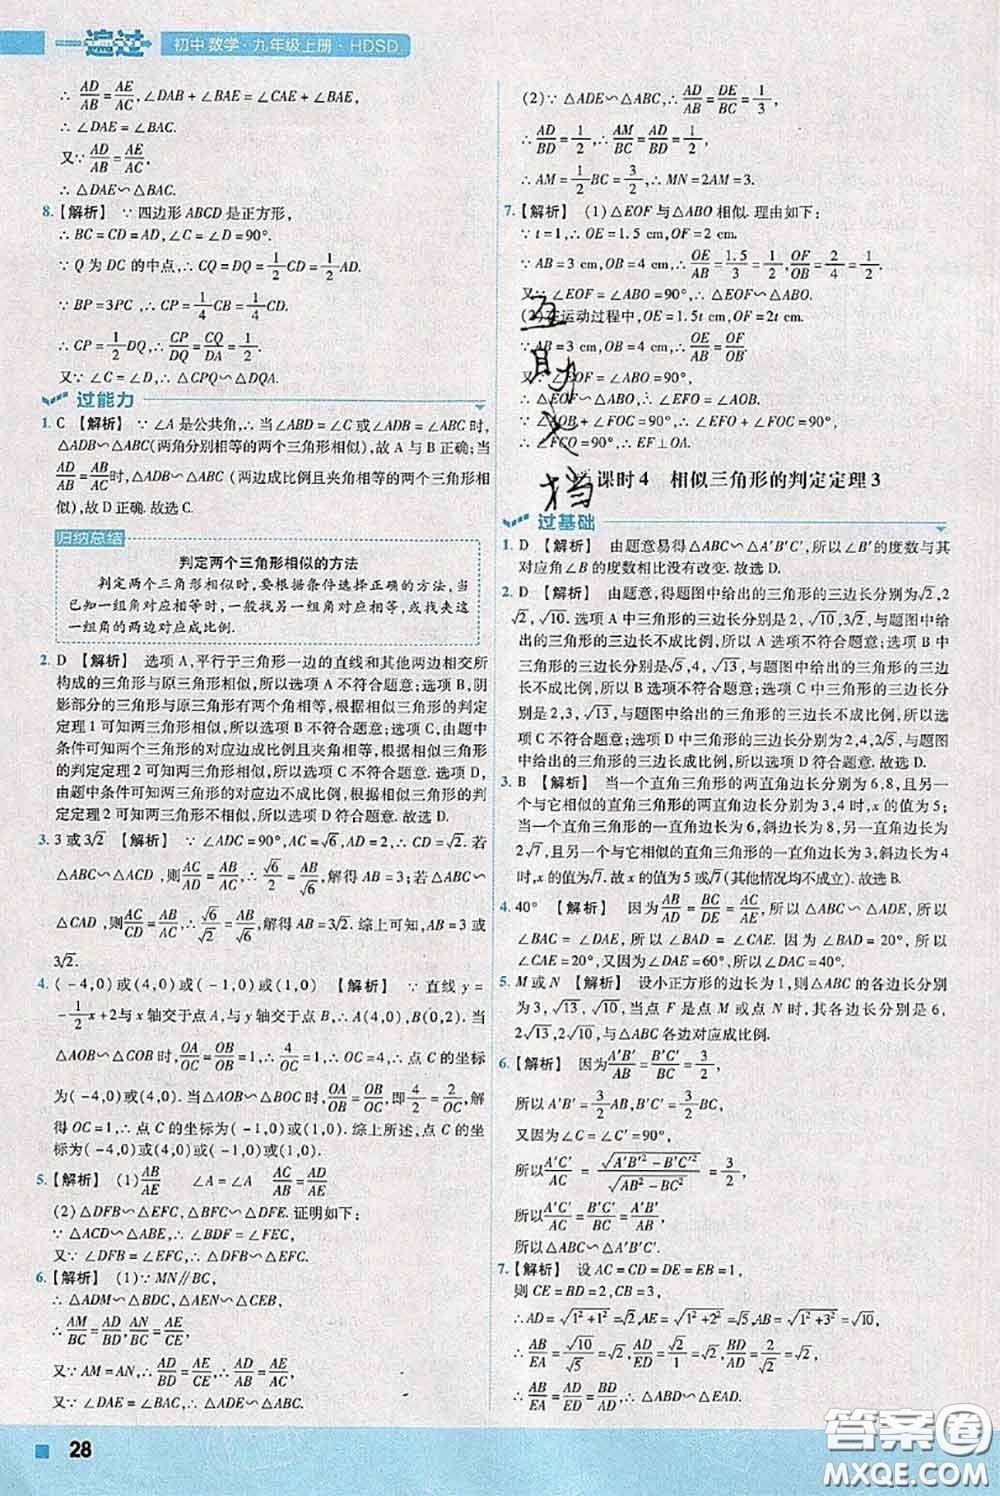 一遍过 初中 数学·九年级上册·HDSD
∴ AD/AB = AE/AC, ∠DAB + ∠BAE = ∠CAE + ∠BAE,
∴ ∠DAE = ∠BAC.
又∵ AD/AB = AE/AC,
∴ △DAE∽△BAC.
8.【解析】 ∵ 四边形 ABCD 是正方形,
∴ BC = CD = AD, ∠C = ∠D = 90°.
∵ Q 为 DC 的中点, ∴ CQ = DQ = 1/2 CD = 1/2 AD.
∵ BP = 3PC, ∴ CP = 1/4 CB = 1/4 CD.
∴ CP = 1/2 DQ, ∴ CP/DQ = CQ/DA = 1/2.
又∵ ∠C = ∠D, ∴ △CPQ∽△DQA.
过能力
1. C 【解析】 ∵ ∠A 是公共角, ∴ 当∠ABD = ∠C 或∠ADB = ∠ABC 时,
△ADB∽△ABC(两角分别相等的两个三角形相似), 故 A 与 B 正确; 当
AD/AB = AB/AC 时, △ADB∽△ABC (两边成比例且夹角相等的两个三角形相
似), 故 D 正确. 故选 C.
归纳总结
判定两个三角形相似的方法
判定两个三角形相似时, 要根据条件选择正确的方法, 当
已知一组角对应相等时, 一般找另一组角对应相等, 或找夹这
一组角的两边对应成比例.
2. D 【解析】 选项 A, 平行于三角形一边的直线和其他两边相交所
构成的三角形与原三角形相似, 所以选项 A 不符合题意; 选项 B, 阴
影部分的三角形与原三角形有两个角相等, 根据相似三角形的判定
定理 1 可知两三角形相似, 所以选项 B 不符合题意; 选项 C, 由题中
条件可知两三角形的对应边成比例且夹角相等, 根据相似三角形
的判定定理 2 可知两三角形相似, 所以选项 C 不符合题意; 选项 D,
由题中条件可知两三角形的对应边成比例, 根据相似三角形的判
定定理 2 可知两三角形不相似, 所以选项 D 符合题意. 故选 D.
3. 3 或 3√2 【解析】 ∵ ∠ADC = 90°, AC = √6, AD = 2, ∴ CD = √2. 若
△ABC∽△ACD, 则 AC/AD = AB/AC, ∴ √6/2 = AB/√6, 解得 AB = 3; 若△ABC
∽△CAD, 则 AC/CD = AB/AC, ∴ √6/√2 = AB/√6, 解得 AB = 3√2. 综上可知, AB = 3 或
3√2.
4. ( -4,0)或(4,0)或( -1,0)或(1,0) 【解析】 ∵ 直线 y =
-1/2 x + 2 与 x 轴交于点 A, 与 y 轴交于点 B, ∴ A(4,0), B(0,2). 当
△AOB∽△COB 时, OA/OC = OB/OB = 1, ∴ 4/OC = 1, ∴ OC = 4, ∴ 点 C 的坐标
为( -4,0)或(4,0). 当△AOB∽△BOC 时, OA/OB = OB/OC, 即 4/2 = 2/OC,
解得 OC = 1, ∴ 点 C 的坐标为( -1,0)或(1,0). 综上所述, 点 C 的坐标为
( -4,0)或(4,0)或( -1,0)或(1,0).
5.【解析】 (1) AB/AE ∠A = ∠A AB/AE
(2)△DFB∽△EFC, △BFC∽△DFE. 证明如下:
∵ △ACD∽△ABE, ∴ ∠BDF = ∠FEC,
又∵ ∠DFB = ∠EFC, ∴ △DFB∽△EFC.
6.【解析】 (1)∵ MN∥BC,
∴ △ADM∽△BDC, △AEN∽△CEB,
∴ AM/BC = AD/BD, AN/BC = AE/CE,
又∵ AM = AN, ∴ AD/BD = AE/CE, ∴ AD/AB = AE/AC,
又∵ ∠DAE = ∠BAC, ∴ △ADE∽△ABC.
(2)∵ △ADE∽△ABC, ∴ AD/AB = DE/BC = 1/3,
∴ AD/BD = 1/2, ∴ AM/BC = AD/BD = 1/2,
∴ AM = 1/2 BC = 3/2, ∴ MN = 2AM = 3.
7.【解析】 (1)△EOF 与△ABO 相似. 理由如下:
∵ t = 1, ∴ OE = 1.5 cm, OF = 2 cm.
∵ AB = 3 cm, OB = 4 cm, ∴ OE/AB = 1.5/3 = 1/2, OF/OB = 2/4 = 1/2.
又∵ ∠EOF = ∠ABO = 90°, ∴ △EOF∽△ABO.
(2)在运动过程中, OE = 1.5t cm, OF = 2t cm.
∵ AB = 3 cm, OB = 4 cm, ∴ OE/AB = OF/OB.
又∵ ∠EOF = ∠ABO = 90°, ∴ △EOF∽△ABO, ∴ ∠EFO = ∠AOB.
∵ ∠AOB + ∠FOC = 90°, ∴ ∠EFO + ∠FOC = 90°,
∴ ∠FCO = 90°, ∴ EF⊥OA.
课时4 相似三角形的判定定理3
过基础
1. D 【解析】 由题意易得△ABC∽△A′B′C′, 所以∠B′的度数与其
对应角∠B 的度数相比没有改变. 故选 D.
2. D 【解析】 由题意, 得题图中给出的三角形的三边长分别为√2, 2
√2, √10. 选项 A 中三角形的三边长分别是 2, √10, 3√2, 与题图中给
出的三角形的三边长不成比例, 所以 A 选项不符合题意; 选项 B 中
三角形的三边长分别是√5, 4, √13, 与题图中给出的三角形的三边
长不成比例, 所以 B 选项不符合题意; 选项 C 中三角形的三边长分
别是 2, 3, √13, 与题图中给出的三角形的三边长不成比例, 所以 C
选项不符合题意; 选项 D 中三角形的三边长分别为 2, 4, 2√5, 与题
图中给出的三角形的三边长成比例, 所以 D 选项符合题意. 故选 D.
3. B 【解析】 当一个直角三角形的两直角边长分别为 6, 8, 且另一
个与它相似的直角三角形的两直角边长分别为 3, 4 时, x 的值为 5;
当一个直角三角形的一直角边长为 6, 斜边长为 8, 另一直角边长为
2√7, 且另一个与它相似的直角三角形的一直角边长为 3, 斜边长为 4
时, x 的值为√7. 故 x 的值为 5 或√7(其他情况均不成立). 故选 B.
4. 40° 【解析】 因为 AB/AD = BC/DE = AC/AE, 所以△ABC∽△ADE, 所以
∠BAC = ∠DAE, 所以∠BAD = ∠CAE. 因为∠BAD = 20°, 所以
∠CAE = 20°, 又因为∠DAE = 60°, 所以∠DAC = 40°.
5. M 或 N 【解析】 设小正方形的边长为 1, 则△ABC 的各边长分别
为 3, √13, √10, 当点 F 是点 M 或点 N 时, △DEF 的各边长分别为 6,
2√13, 2√10, 与△ABC 各边对应成比例.
6.【解析】 因为 A′B′/AB = B′C′/BC = 3/2,
所以 A′B′ = 3/2 AB, B′C′ = 3/2 BC,
又因为∠C = ∠C′ = 90°,
所以 A′C′/AC = √(A′B′² - B′C′²)/√(AB² - BC²) = 3/2,
所以 A′C′/AC = B′C′/BC = A′B′/AB,
所以△ABC∽△A′B′C′.
7.【解析】 设 AC = CD = DE = EB = 1,
则 CE = BD = 2, CB = 3,
∴ AD = √(1² + 1²) = √2, AE = √(1² + 2²) = √5, AB = √(1² + 3²) = √10,
∴ AB/EA = √10/√5 = √2, AD/ED = √2/1 = √2, BD/AD = 2/√2 = √2,
∴ AB/EA = AD/ED = BD/AD, ∴ △ABD∽△EAD.
28
答案圈
MXQE.COM